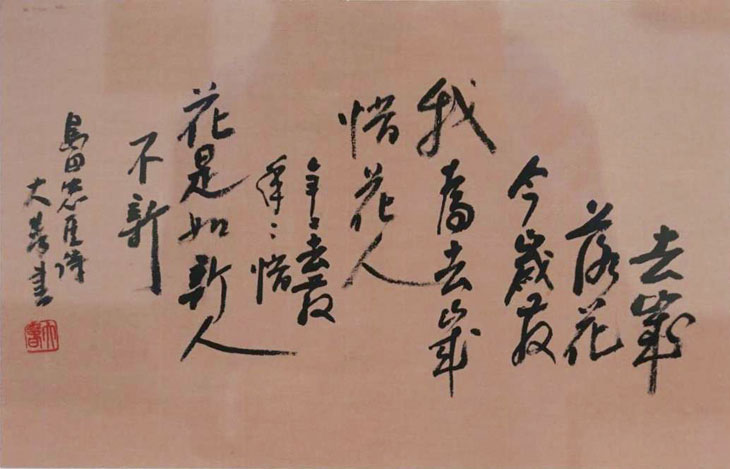 去歲
落花
今歲發
我為去歲
惜花人
年々去發
年々惜
花是如新人
不新
島田忠臣詩
大壽書